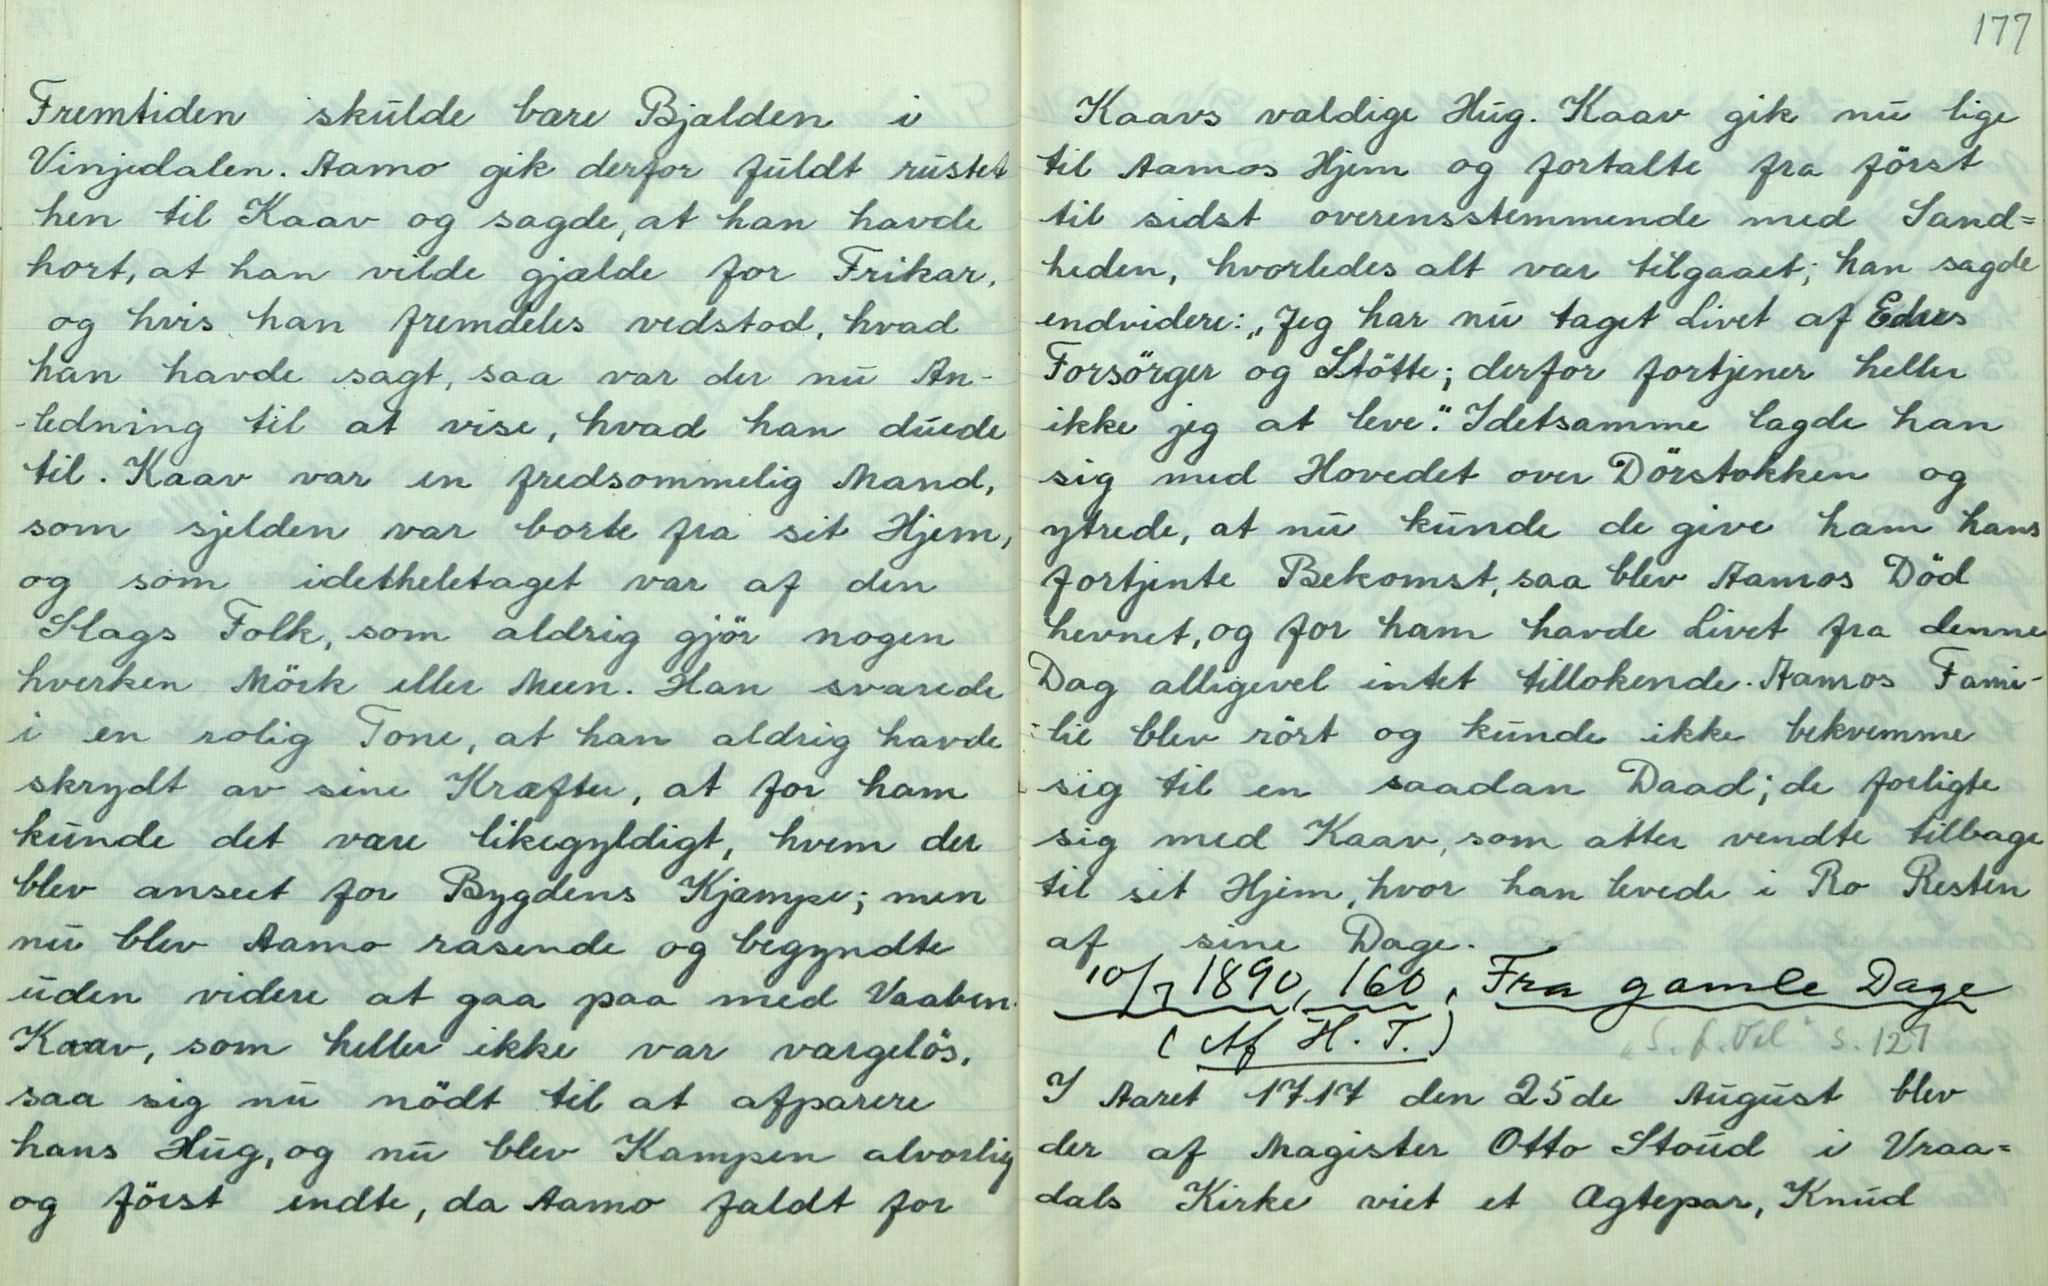 Fremtiden skulde bære Bjælden i
Vinjedalen. Aamo gik derfor fuldt rustet
hen til Kaav og sagde, at han havde
hørt, at han vilde gjælde for Frikar,
og hvis han fremdeles vedstod, hvad
han havde sagt, saa var der nu An-
-ledning til at vise, hvad han duede
til. Kaav var en fredsommelig Mand,
som sjelden var borte fra sit Hjem,
og som idetheletaget var af den
Slags Folk, som aldrig gjör nogen
hverken Mörk eller Meen. Han svarede
i en rolig Tone, at han aldrig havde
skrydt av sine Kræfter, at for ham
kunde det være likegyldigt, hvem der
blev anseet for Bygdens Kjæmpe; men
nu blev Aamo rasende og begyndte
uden videre at gaa paa med Vaaben.
Kaav, som heller ikke var værgelös,
saa sig nu nödt til at afparere
hans Hug, og nu blev Kampen alvorlig
og först endte, da Aamo faldt for
177
Kaavs vældige Hug. Kaav gik nu lige
til Aamos Hjem og fortalte fra först
til sidst overensstemmende med Sand=
heden, hvorledes alt var tilgaaet; han sagde
endvidere: „Jeg har nu taget Livet af Eders
Forsörger og Stötte; derfor fortjener heller
ikke jeg at leve." Idetsamme lagde han
sig med Hovedet over Dörstokken og
ytrede, at nu kunde de give ham hans
fortjente Bekomst, saa blev Aamos Död
hevnet, og for ham havde Livet fra denne
Dag alligevel intet tillokende. Aamos Fami-
-lie blev rört og kunde ikke bekvemme
sig til en saadan Daad; de forligte
sig med Kaav, som atter vendte tilbage
til sit Hjem, hvor han levede i Ro Resten
af sine Dage.
10/7 1890, 160, Fra gamle Dage
(Af H. T.)
„S. f. Tel" s. 127
I Aaret 1717 den 25de August blev
der af Magister Otto Stoud i Vraa=
dals Kirke viet et Ægtepar, Knud